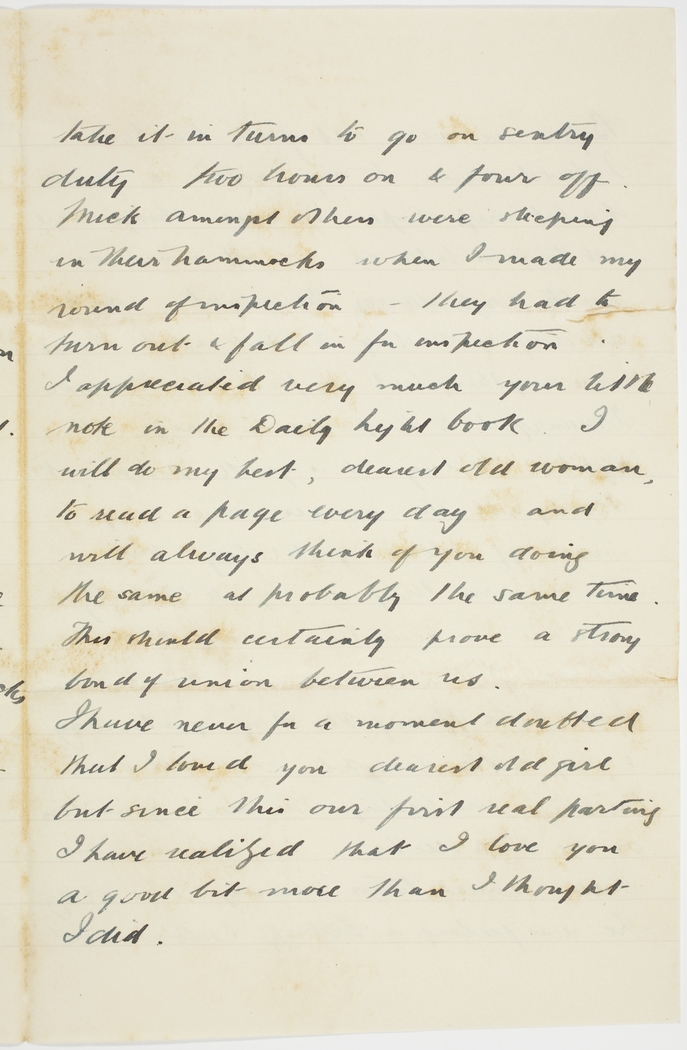 take it in turns to go on sentry
duty two hours on & four off.
Mick amongst others were sleeping
in their hammocks when I made my
round of inspection - they had to
turn out & fall in for inspection.
I appreciated very much your little
note in the Daily Light book. I
will do my best, dearest old woman,
to read a page every day and
will always think of you doing
the same at probably the same time.
This should certainly prove a strong
bond of union between us.
I have never for a moment doubted
that I loved you dearest old girl
but since this our first real parting
I have realized that I love you
a good bit more than I thought
I did.